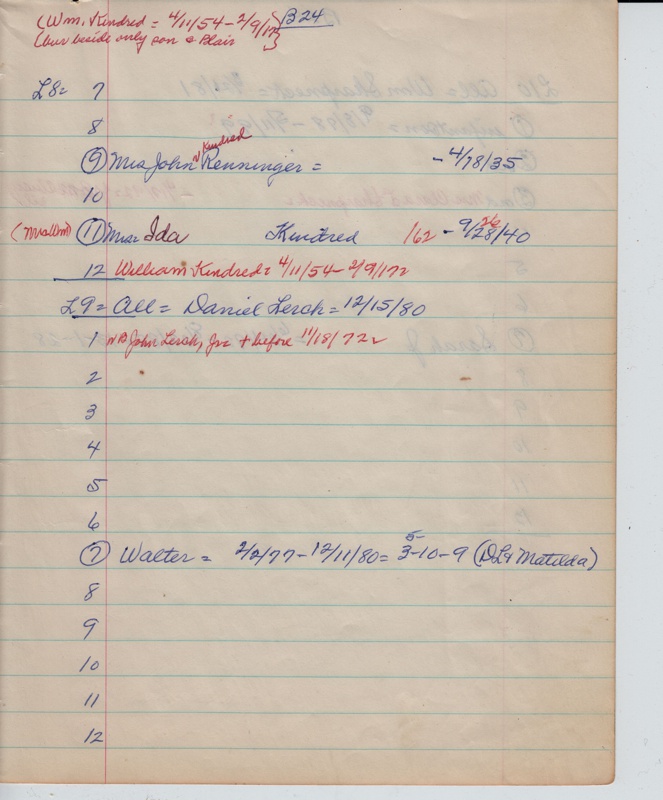 (Wm. Kindred = 4/11/54 - 2/9/17 } B24
(bur beside only son & Blair }
L8= 7
8
Kindred
(9) Mrs John Renninger = - 4/18/35
10
26
(Mrs Wm) (11) Mrs= Ida Kindred 1/62 - 9/28/40
12 William Kindred: 4/11/54 - 2/9/17
L9= All= Daniel Lerch = 12/15/80
1 NB John Lerch, Jr= + before 11/18/72
2
3
4
5
6
5-
(7) Walter = 2/2/77 - 12/11/80 = 3-10-9 (DL & Matilda)
8
9
10
11
12